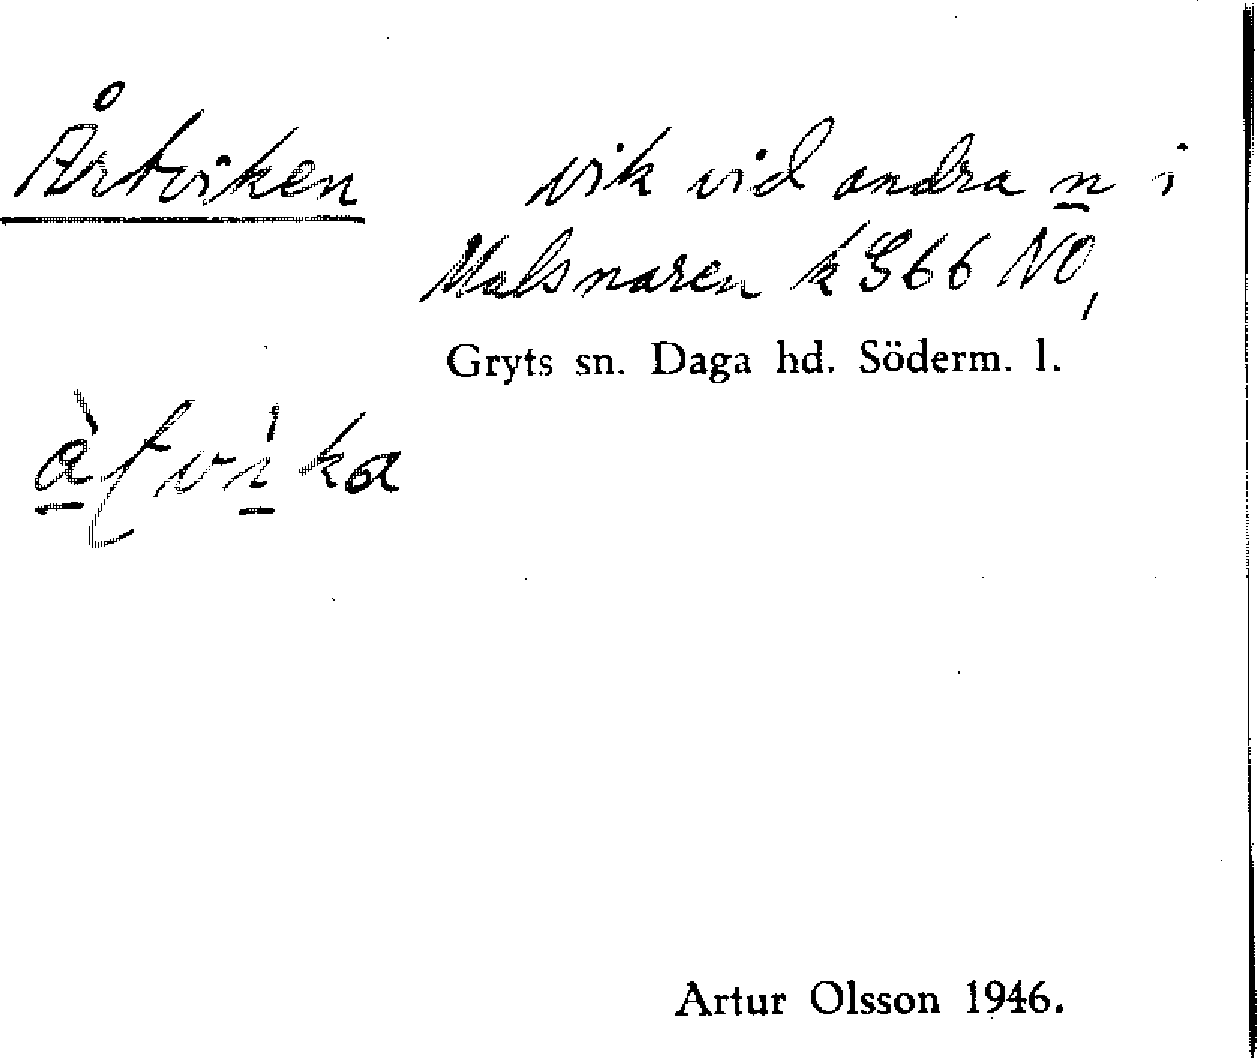 Årtviken vik vid andra n i
Malsnaren k 966 NO,
Gryts sn. Daga hd. Söderm. l.
Artur Olsson 1946.